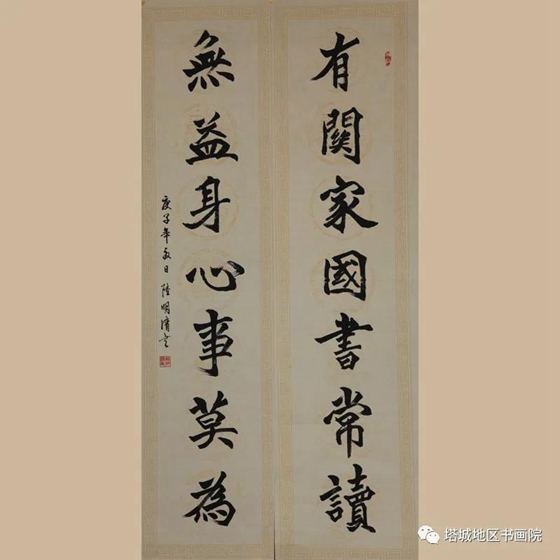 有關家國書常讀
無益身心事莫為
庚子年秋日 陸明清書
塔城地区书画院